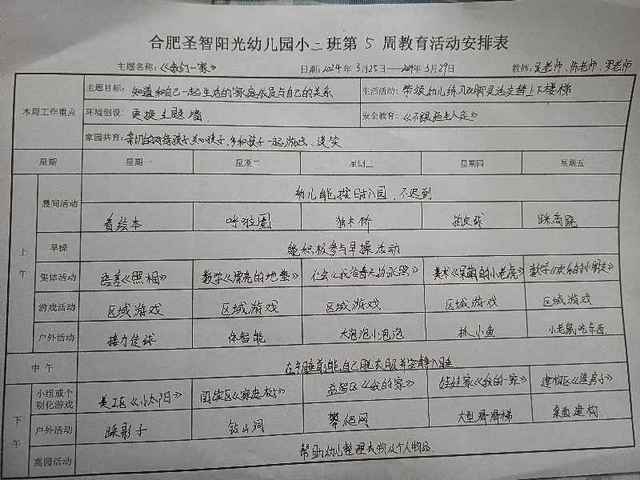 合肥圣智阳光幼儿园小二班第 5 周教育活动安排表
主题名称：《我们一家》 日期：2024年3月25日—2024年3月29日 教师：吴老师、陈老师、
本周工作重点 主题目标：知道和自己一起生活的家庭成员与自己的关系 生活活动：带领幼儿练习双脚灵活交替上下楼梯
环境创设：更换主题墙 安全教育：《不跟陌生人走》
家园共育：亲们 多和孩子一起游戏、谈笑
星期 星期一 星期二 星期三 星期四 星期五
上午 晨间活动 幼儿能按时入园，不迟到
看绘本 呼啦圈 独木桥 踩高跷
早操 能积极参与早操活动
集体活动 语言《照相》 数学《漂亮的地垫》 社会《我给春天的 》 美术《 的小老虎》 数学
游戏活动 区域游戏 区域游戏 区域游戏 区域游戏 区域游戏
户外活动 接力传球 体智能 大泡泡小泡泡 抓小鱼
中午 在午睡前能自己脱衣服并安静入睡
下午 小组或个别化游戏 美工区《小太阳》 阅读区 益智区《我的家》 娃娃家《我的家》 建构区《 房子》
户外活动 踩影子 钻山洞 攀爬网 大型滑滑梯 建构
离园活动 帮助幼儿整理衣物及个人物品